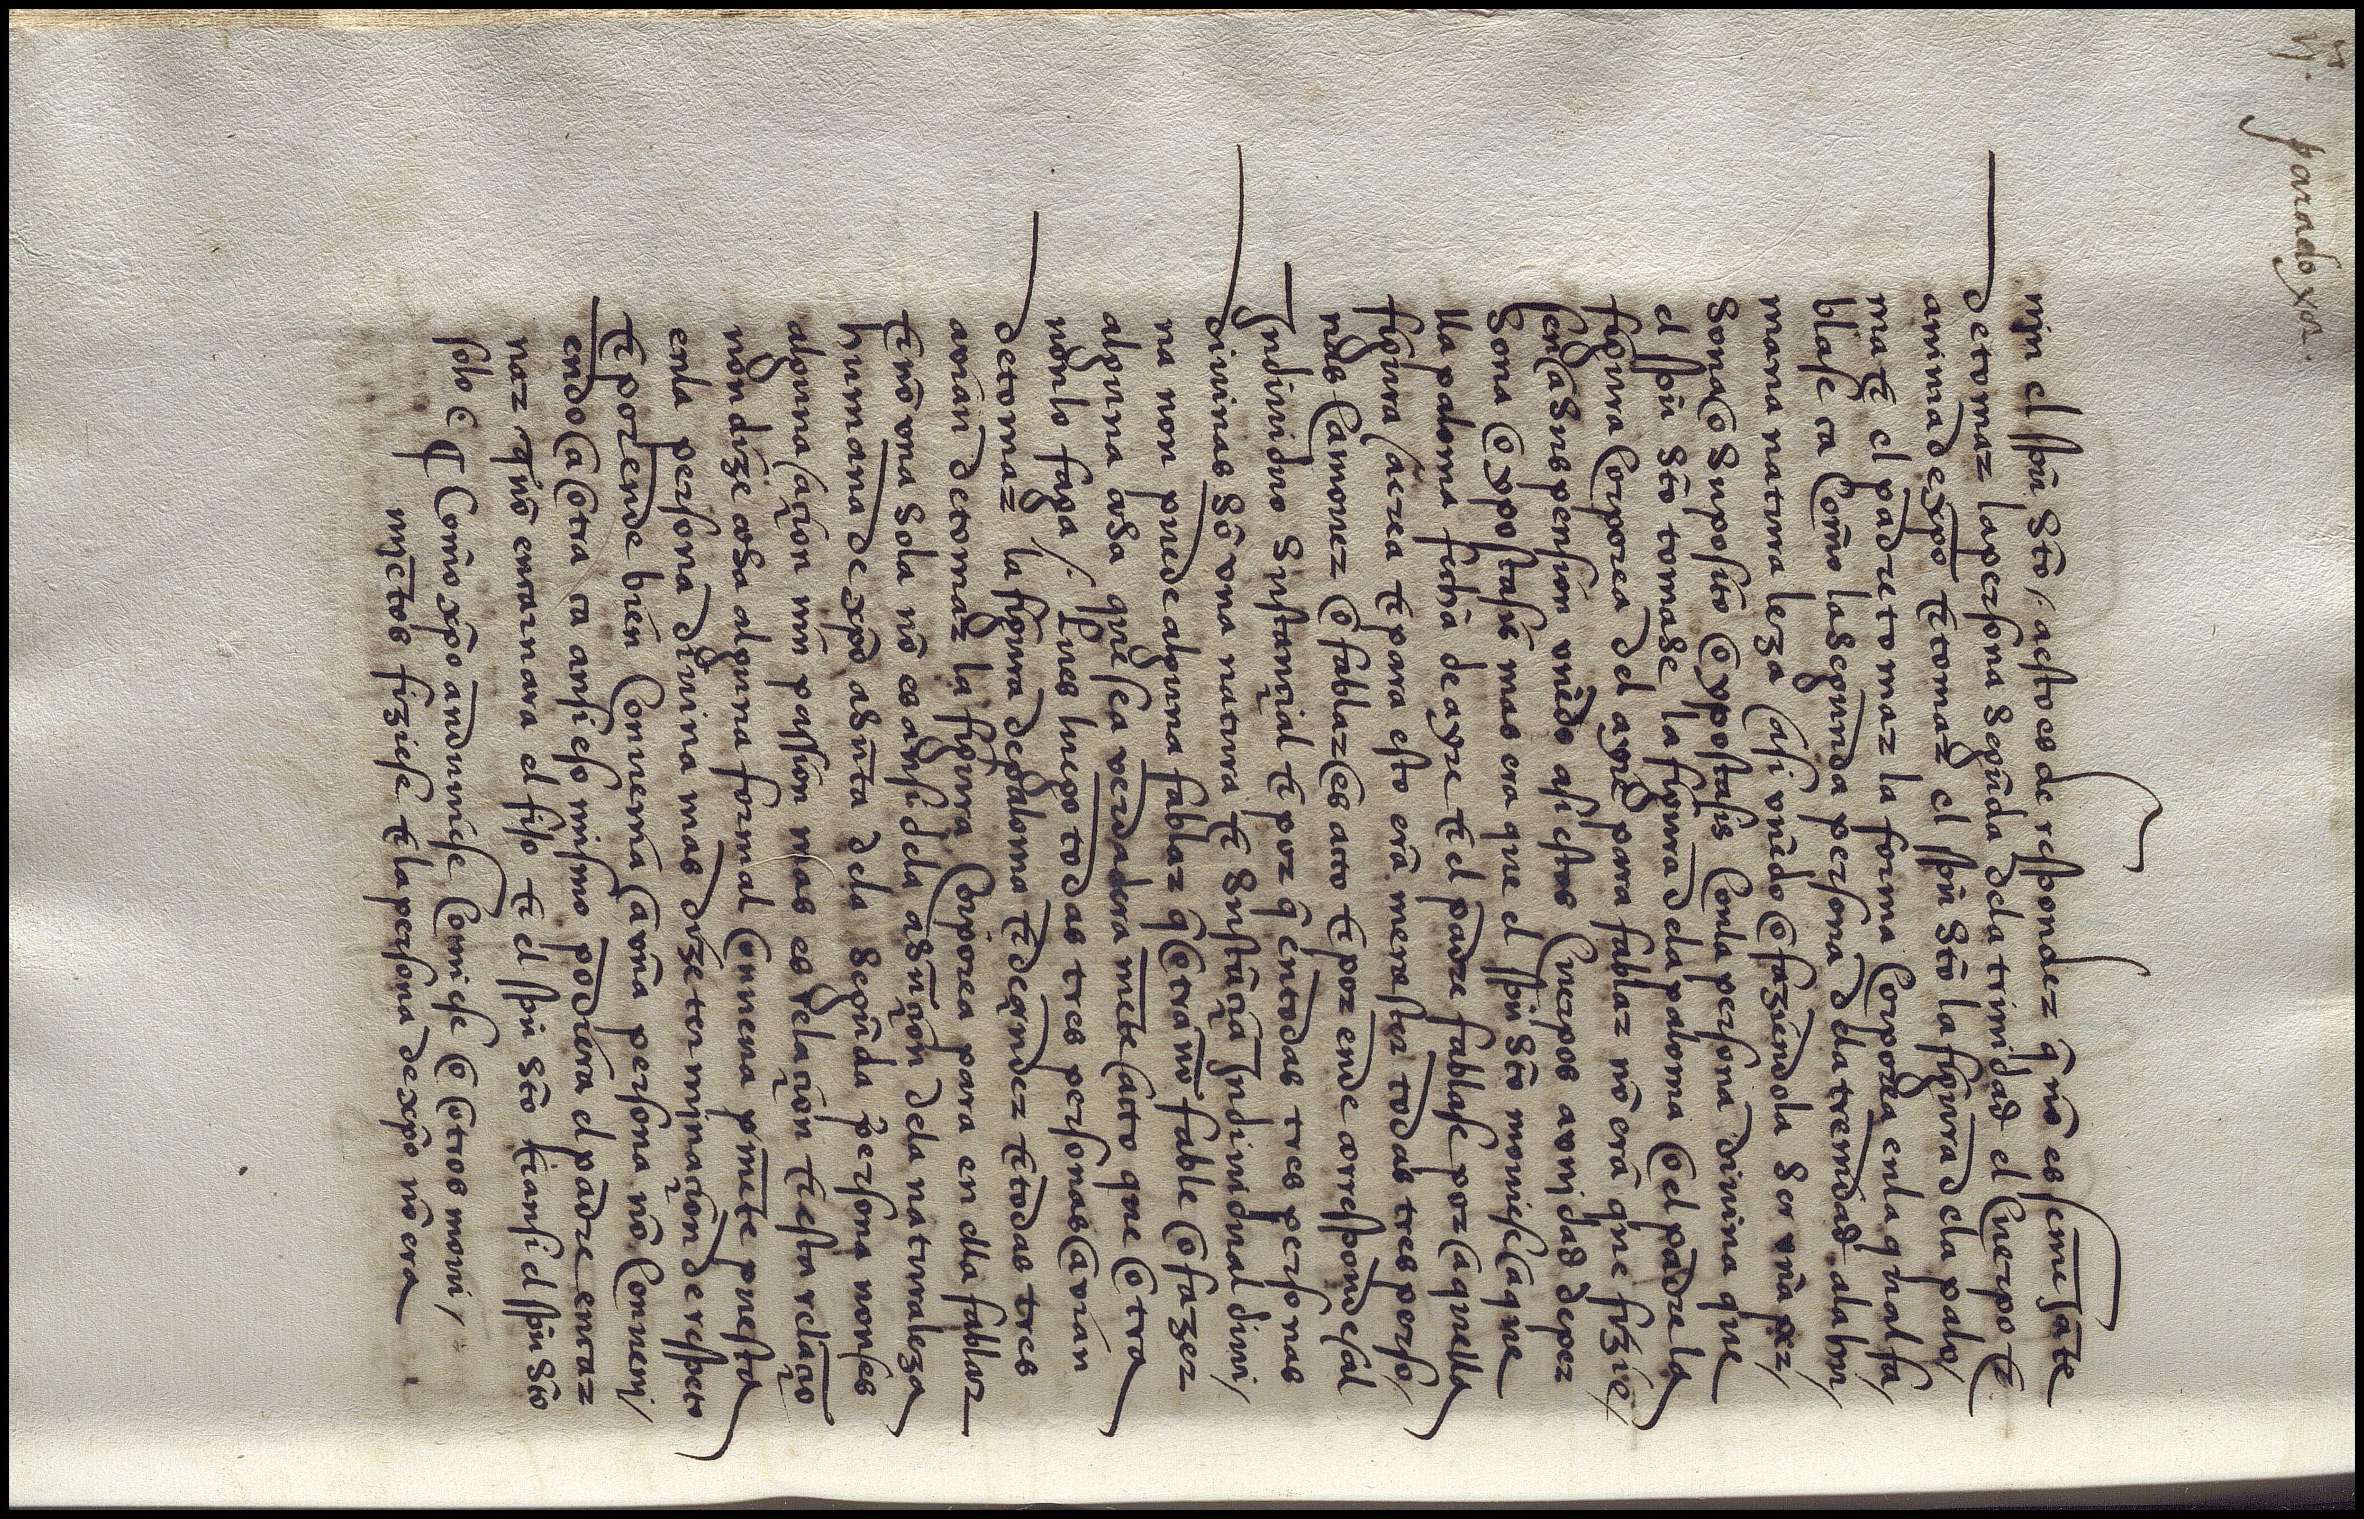 vj. paradoxor.
nin el spũ sto /. a esto es de rresponder q̃ nõ es semeiãte
de tomar la persona segũda dela trinidad el cuerpo τ
anima de xp̃o τ tomar el spũ stõ la figura dela palo/
ma τ el padre tomar la forma corporea enla qual fa/
blase ca como la segunda persona dela trenidad ala hu/
mana natura leza casi vniẽdo o faziendola ser vña per/
sona o suposito o ypostasis conla persona diuina que
el spũ sto tomase la figura dela paloma o el padre la
figura corporea del ayre para fablar nõ era que fizie/
sen a sus pension vniẽdo a si estos cuerpos avnjdad de per
sona o ypostasis mas era que el spũ sto mouiese aque
lla paloma fecha de ayre τ el padre fablase por aquella
figura aerea τ para esto era menester todas tres perso/
nas ca mouer o fablar es auto τ por ende corresponde al
Indiuiduo sustançial τ por q̃ en todas tres personas
diuinas sõ vna natura τ sustãçia Indiuidual diui/
na non puede alguna fablar q̃ otra nõ fable o fazer
alguna cosa que sea verdadera mẽte auto que otra
nõn lo faga /. pues luego todas tres personas avian
de tomar la figura de paloma τ de ander τ todas tres
avian de tomar la figura corporea para en ella fablar
τ nõ vna sola nõ es ansi dela asũçiõn dela naturaleza
humana de xp̃o asũta dela segũda persona non es
alguna açion nin passion mas es relaçion τ esta relaçio
nõn dize cosa alguna formal comuna pmẽte puesta
enla persona diuina mas dize terminaçiõn de respeto
τ por ende bien conuenia a vña persona nõ conueni/
endo a otra ca ansi eso mismo podiera el padre encar
nar q̃ nõ encarnara el fijo τ el spũ sto τ ansi el spũ sto
solo τc ¶ Como xp̃o anduuiese comiese o otros moui/
mjẽtos fiziese τ la persona de xp̃o nõ era